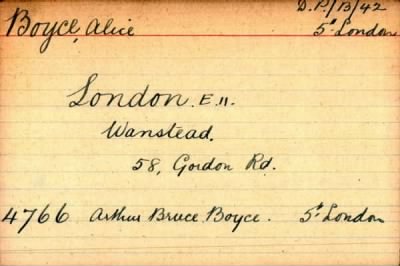 D.P./13/42
Boyce, Alice 5th London
London. E.11.
Wanstead.
58, Gordon Rd.
4766 Arthur Bruce Boyce. 5th London